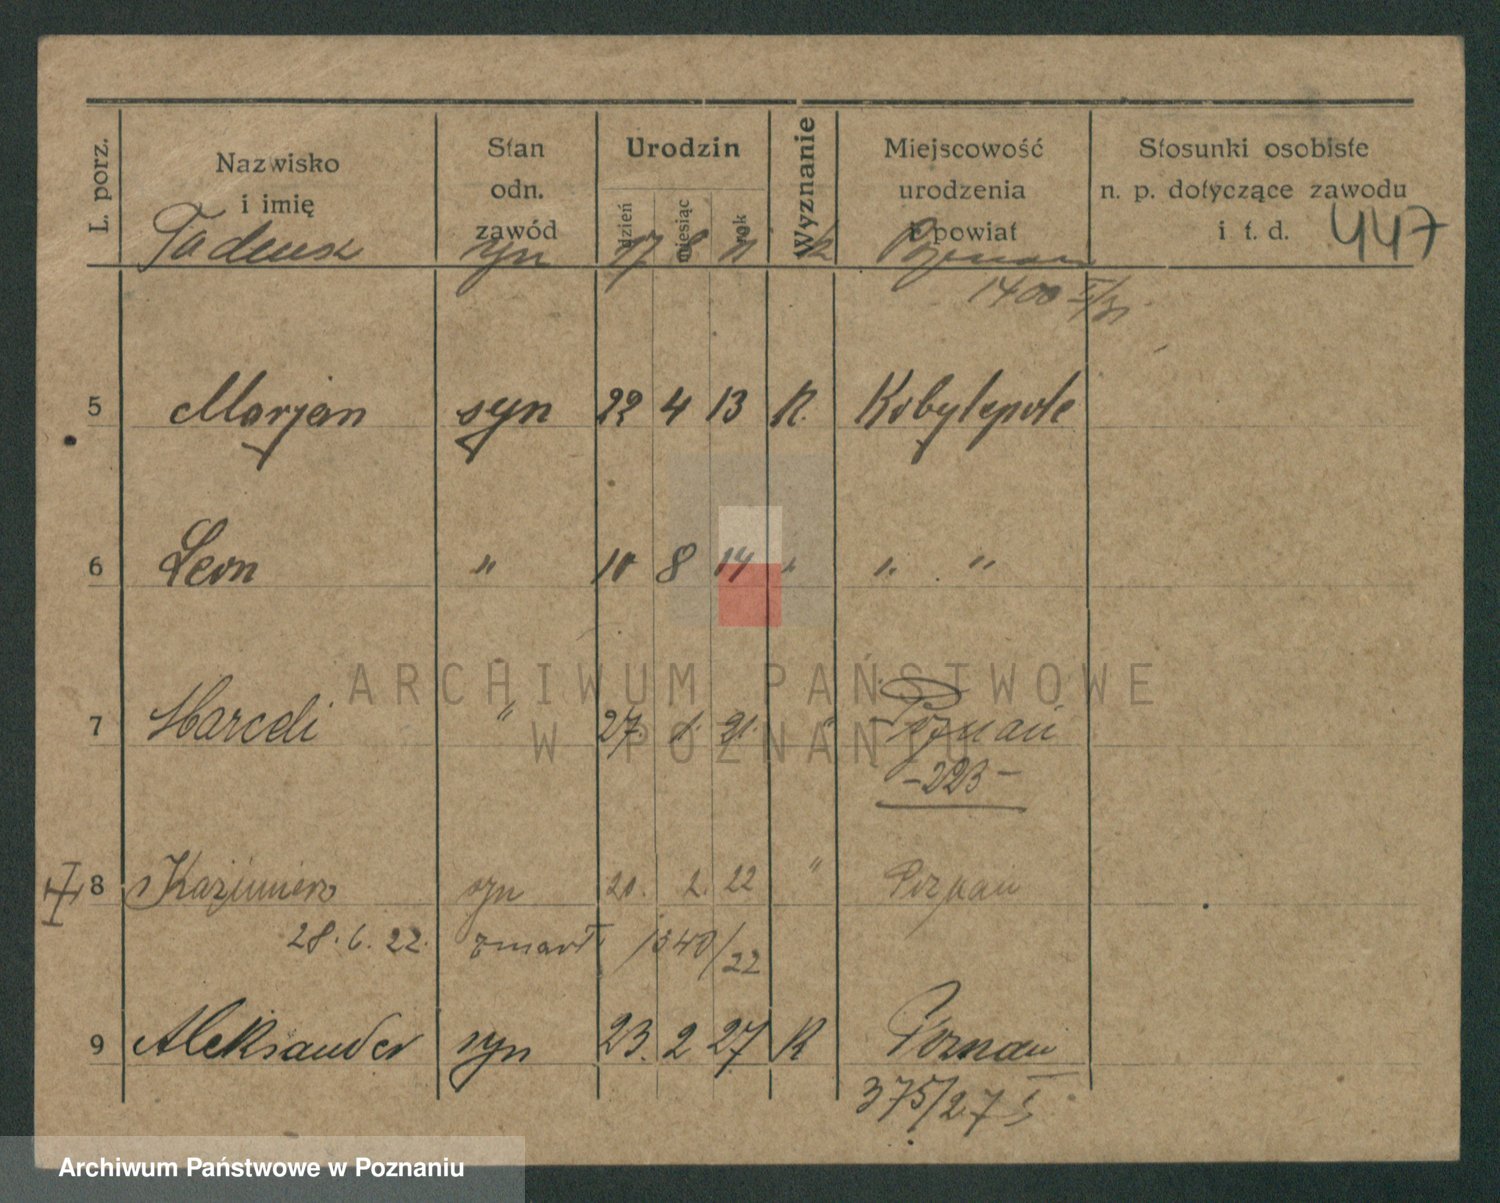 L. porz. Nazwisko i imię Stan odn. zawód Urodzin dzień miesiąc rok Wyznanie Miejscowość urodzenia i powiat Stosunki osobiste n. p. dotyczące zawodu i t. d. 447
Tadeusz syn 17 8 11 k Poznan
1400
5 Marjan syn 22 4 13 K. Kobylepole
6 Leon " 10 8 14 " " "
7 Marceli " 27. 1. 21. " Poznań
-223-
8 Kazimierz syn 21. 2. 22 " Poznań
28.6.22. zmarł 1340/22
9 Aleksander syn 23. 2 27 K Poznan
375/27 I
ARCHIWUM PAŃSTWOWE
W POZNANIU
Archiwum Państwowe w Poznaniu